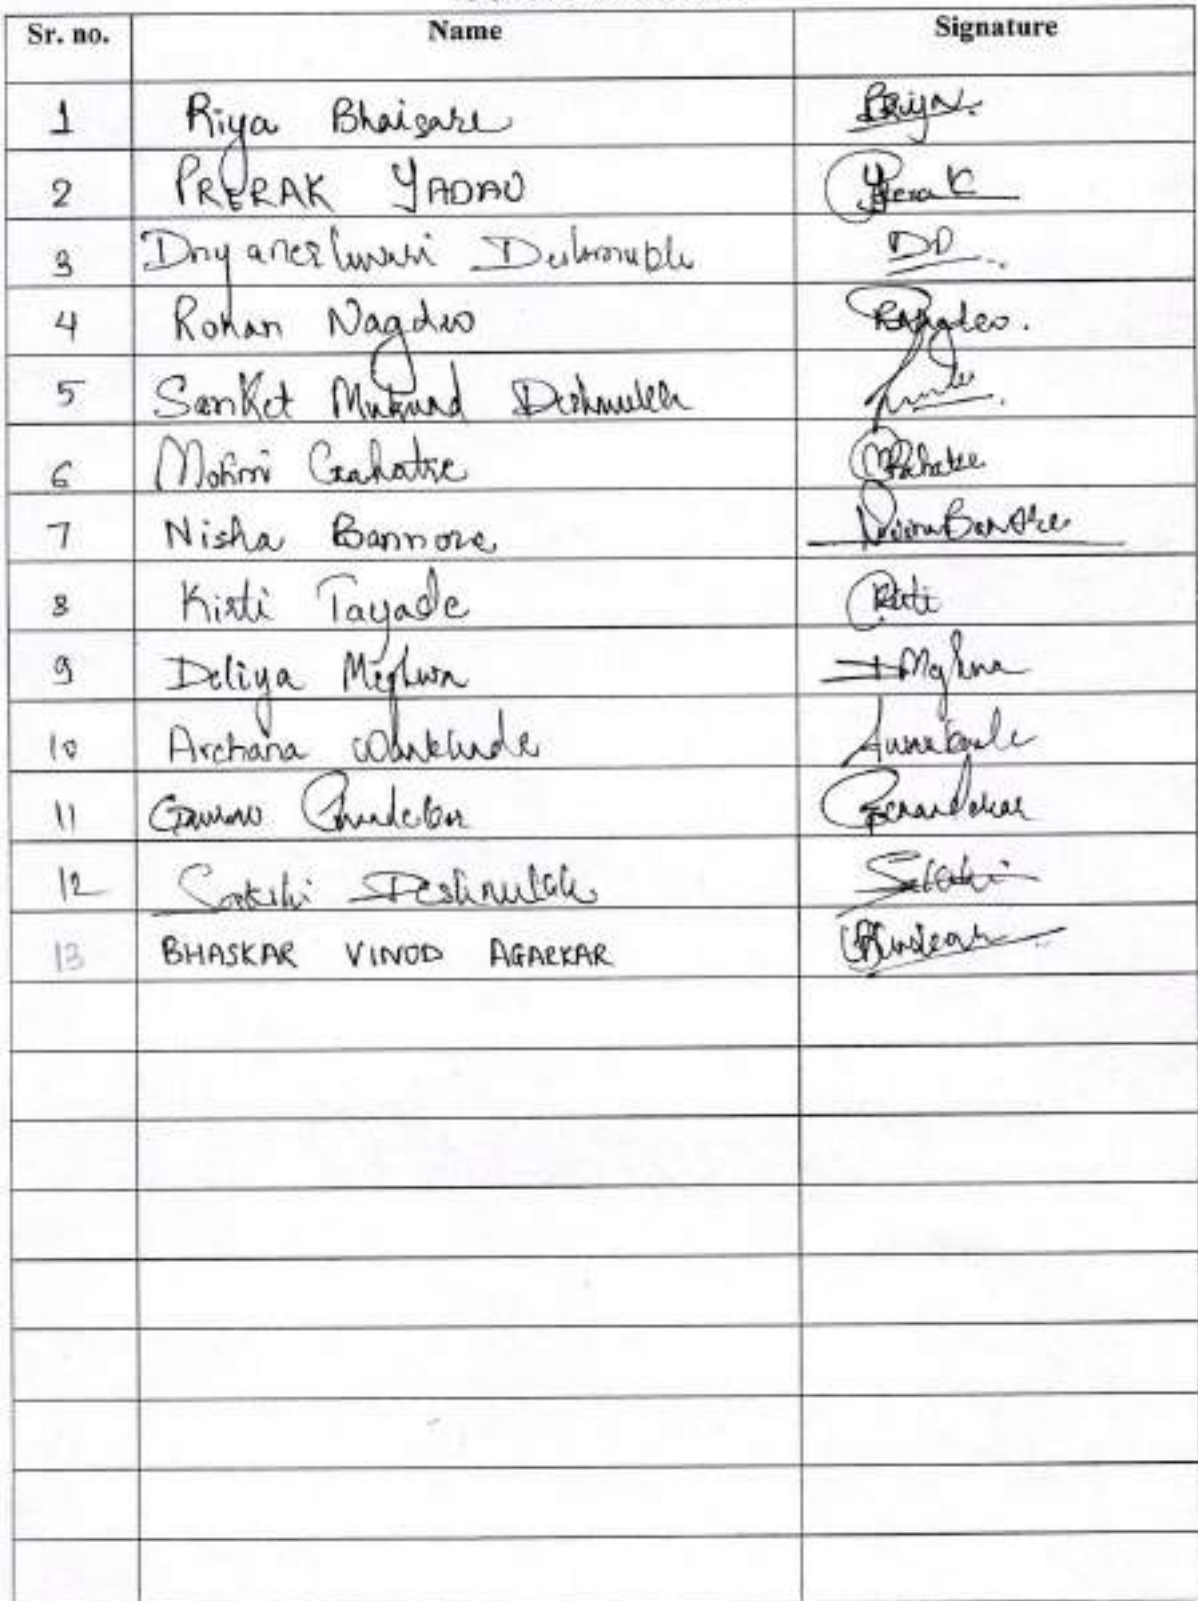 Sr. no. Name Signature
1 Riya Bhaisare Briya.
2 PRERAK YADAV Prerak
3 Dnyaneshwari Deshmukh DD
4 Rohan Nagdeo RNagdeo.
5 Sanket Mukund Deshmukh
6 Mohini Gahatre MGahatre
7 Nisha Bannore
8 Kirti Tayade Kirti
9 Deliya Meghwa Meghna
10 Archana Wankhade
11 Gaurav Chandekar
12 Sakshi Deshmukh Sakshi
13 BHASKAR VINOD AGARKAR